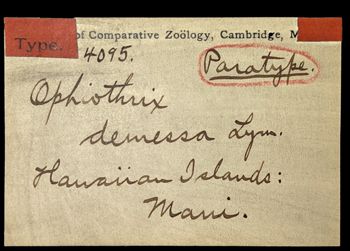 Type. of Comparative Zoölogy, Cambridge, M
4095.
Paratype.
Ophiothrix
demessa Lym.
Hawaiian Islands:
Maui.